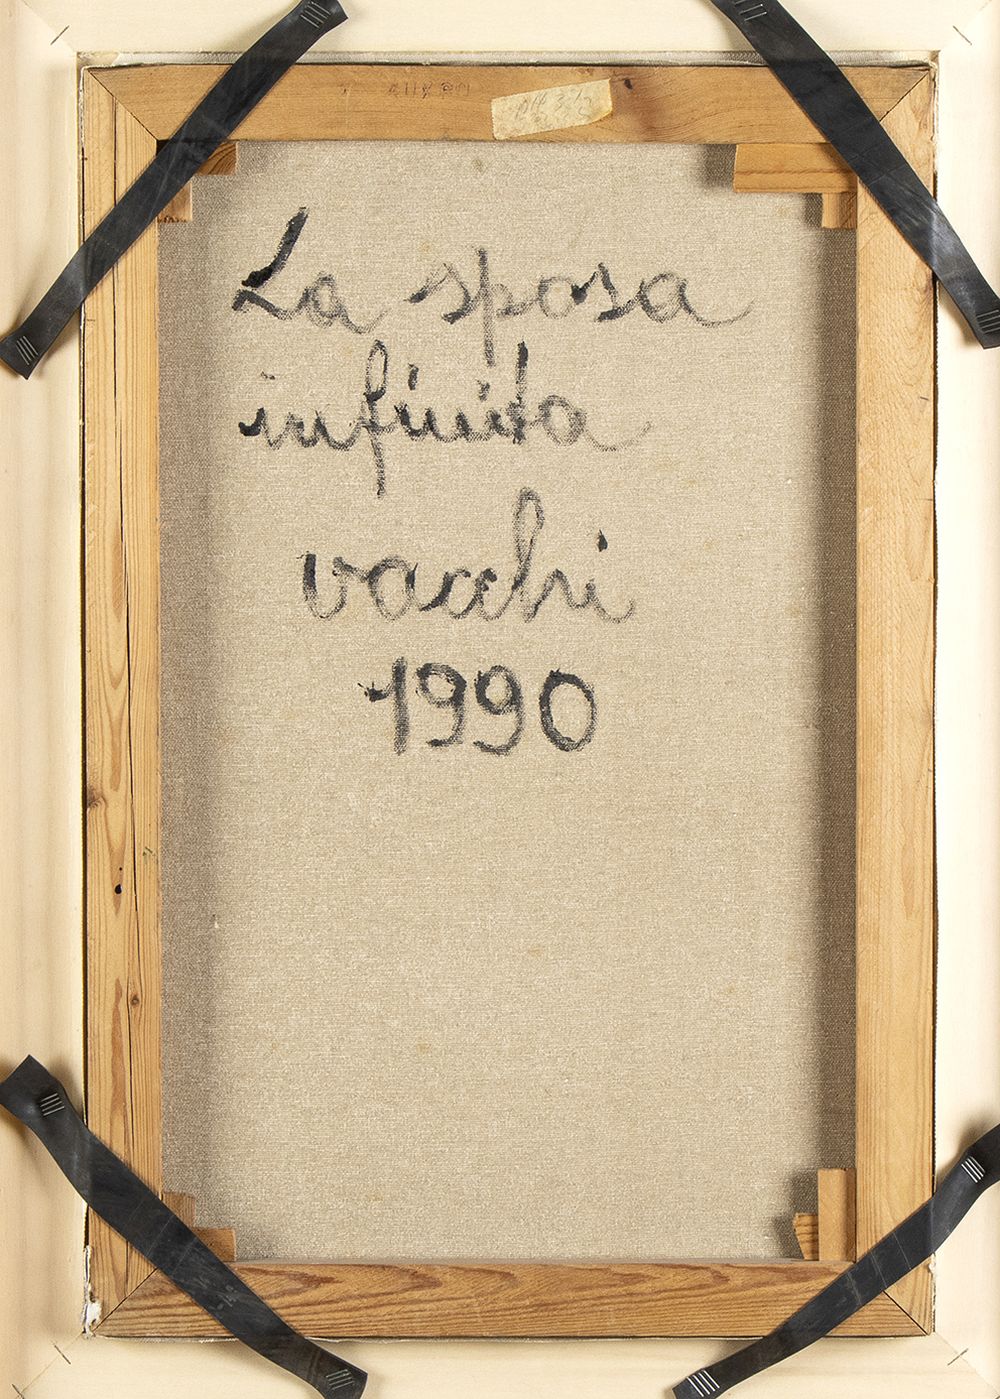 La sposa
infinita
vacchi
1990